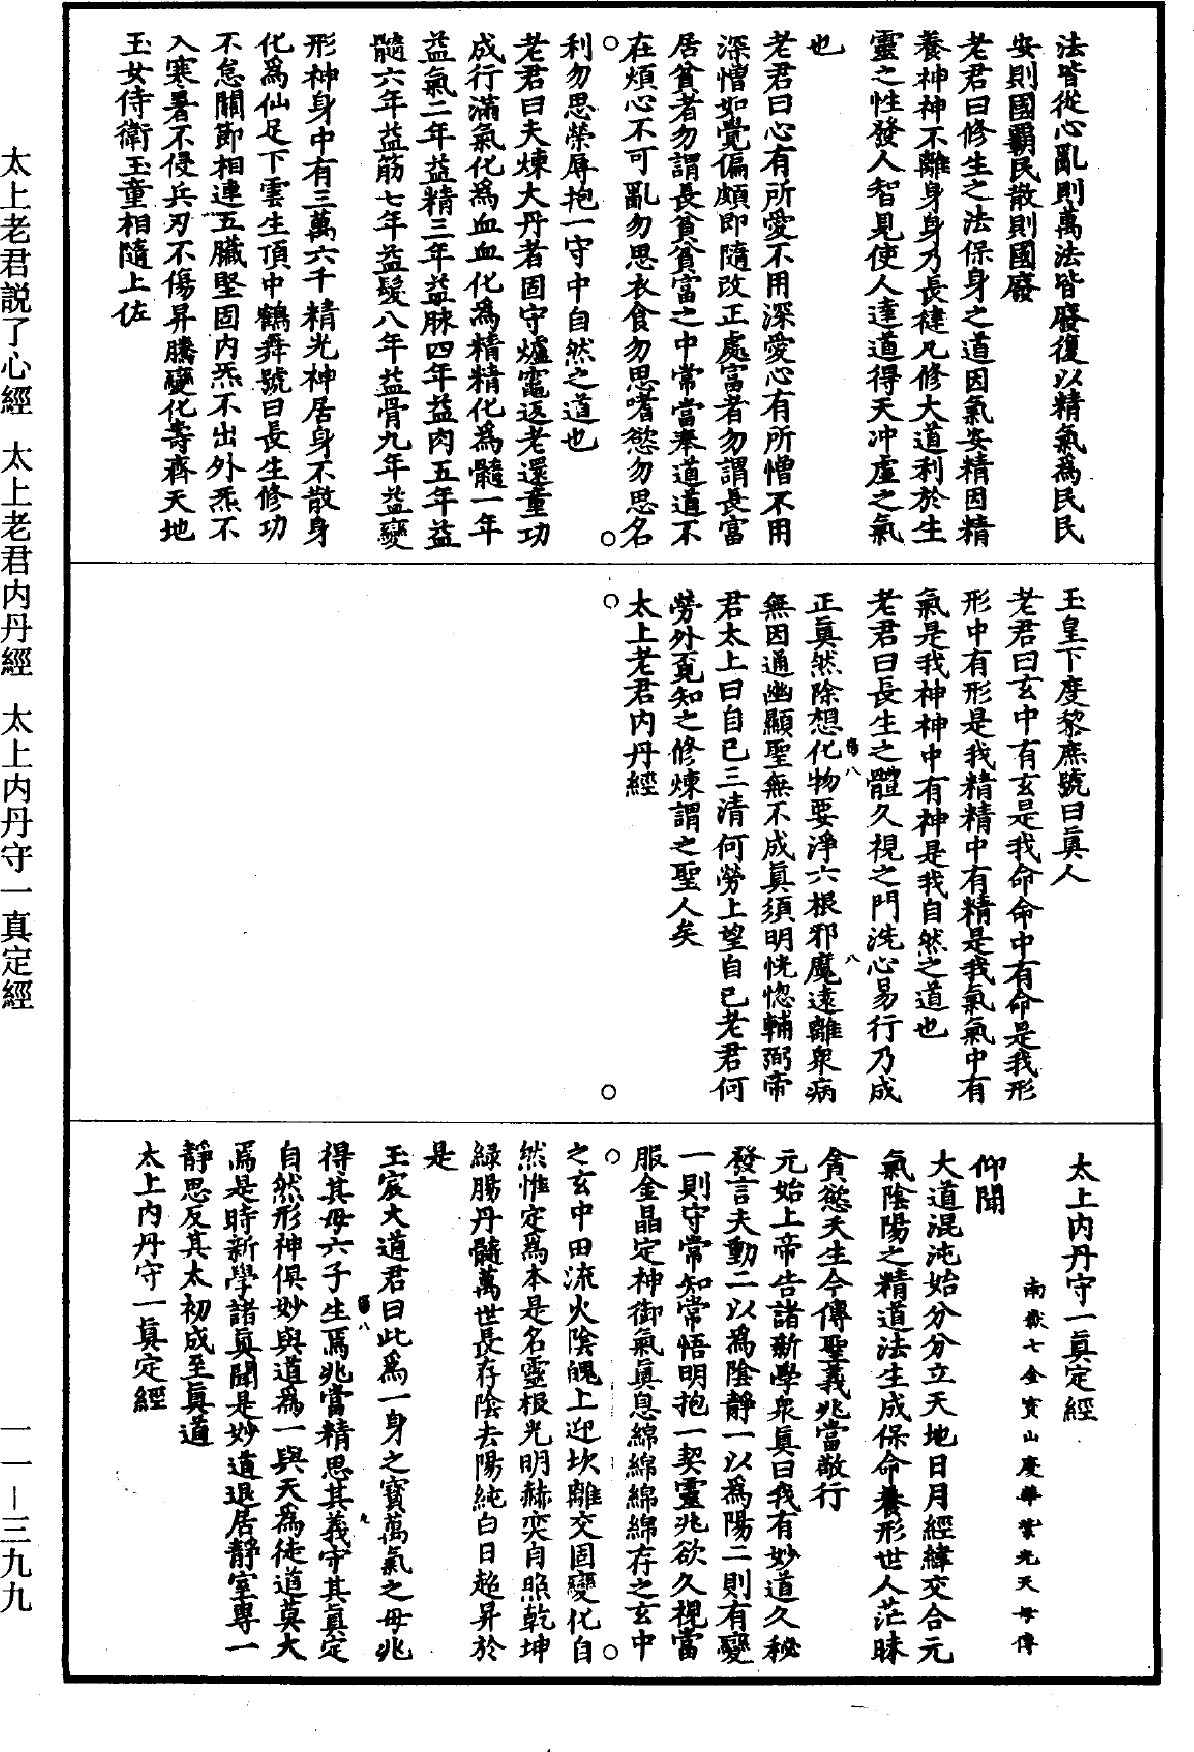 法皆從心亂則萬法皆廢復以精氣爲民民
安則國霸民散則國廢
老君曰修生之法保身之道因氣安精因精
養神神不離身身乃長健凡修大道利於生
靈之性發人智見使人達道得天冲虛之氣
也
老君曰心有所愛不用深愛心有所憎不用
深憎如覺偏頗即隨改正處富者勿謂長富
居貧者勿謂長貧貧富之中常當奉道道不
在煩心不可亂勿思衣食勿思嗜慾勿思名
利勿思榮辱抱一守中自然之道也
老君曰夫煉大丹者固守爐竈返老還童功
成行滿氣化爲血血化爲精精化爲髓一年
益氣二年益精三年益脉四年益肉五年益
髓六年益筋七年益髮八年益骨九年益變
形神身中有三萬六千精光神居身不散身
化爲仙足下雲生頂中鶴舞號曰長生修功
不怠關節相連五臟堅固内炁不出外炁不
入寒暑不侵兵刃不傷昇騰變化壽齊天地
玉女侍衛玉童相隨上佐
玉皇下度黎庶號曰眞人
老君曰玄中有玄是我命命中有命是我形
形中有形是我精精中有精是我氣氣中有
氣是我神神中有神是我自然之道也
老君曰長生之體久視之門洗心易行乃成
正眞然除想化物要淨六根邪魔遠離衆病
無因通幽顯聖無不成眞須明恍惚輔弼帝
君太上曰自己三清何勞上望自己老君何
勞外覓知之修煉謂之聖人矣
太上老君内丹經
太上内丹守一眞定經
南嶽七金寶山慶華紫光天母傳
仰聞
大道混沌始分分立天地日月經緯交合元
氣陰陽之精道法生成保命養形世人茫昧
貪慾天生今傳聖義兆當敬行
元始上帝告諸新學衆眞曰我有妙道久秘
發言夫動二以爲陰靜一以爲陽二則有變
一則守常知常悟明抱一契靈兆欲久視當
服金晶定神御氣眞息綿綿綿綿存之玄中
之玄中田流火陰魄上迎坎離交固變化自
然惟定爲本是名靈根光明赫奕自照乾坤
緑腸丹髓萬世長存陰去陽純白日超昇於
是
玉宸大道君曰此爲一身之寶萬氣之母兆
得其母六子生焉兆當精思其義守其眞定
自然形神俱妙與道爲一與天爲徒道莫大
焉是時新學諸眞聞是妙道退居靜室專一
靜思反其太初成至眞道
太上内丹守一眞定經
太上老君説了心經　太上老君内丹經　太上内丹守一真定經
一一－三九九